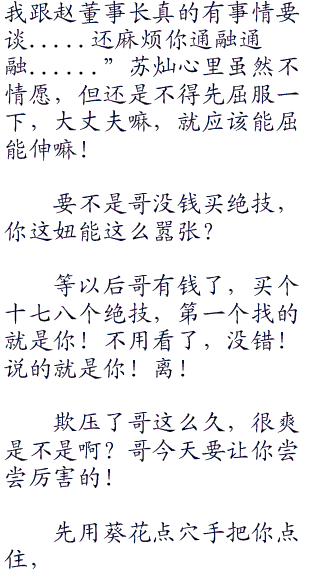 我跟赵董事长真的有事情要
谈.....还麻烦你通融通
融......”苏灿心里虽然不
情愿，但还是不得先屈服一
下，大丈夫嘛，就应该能屈
能伸嘛！
要不是哥没钱买绝技，
你这妞能这么嚣张？
等以后哥有钱了，买个
十七八个绝技，第一个找的
就是你！不用看了，没错！
说的就是你！离！
欺压了哥这么久，很爽
是不是啊？哥今天要让你尝
尝厉害的！
先用葵花点穴手把你点
住，